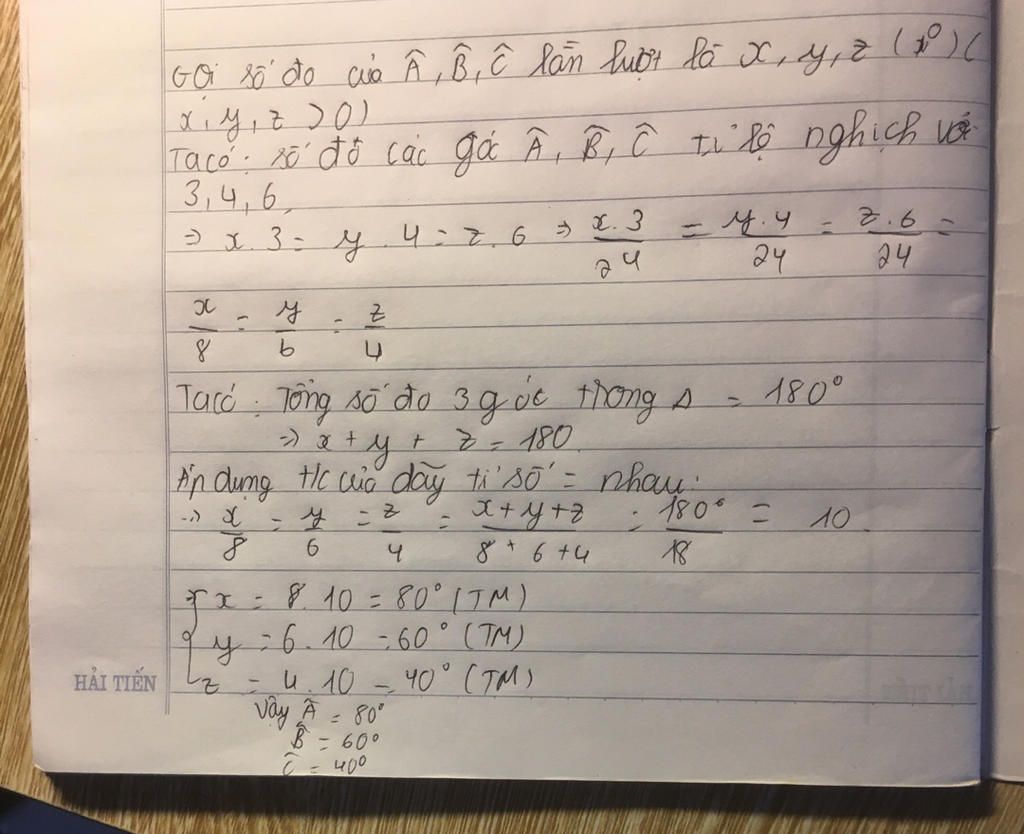 Gọi số đo của Â, B̂, Ĉ lần lượt là x, y, z ( x° ) (
x, y, z > 0)
Ta có: số đô các góc Â, B̂, Ĉ tỉ lệ nghịch với
3, 4, 6,
=> x . 3 = y . 4 = z . 6 => x . 3 / 24 = y . 4 / 24 = z . 6 / 24 =
x/8 = y/6 = z/4
Ta có: Tổng số đo 3 góc trong Δ = 180°
=> x + y + z = 180
Áp dụng t/c của dãy tỉ số = nhau:
=> x/8 = y/6 = z/4 = x+y+z / 8+6+4 = 180° / 18 = 10.
x = 8 . 10 = 80° (TM)
y = 6 . 10 = 60° (TM)
z = 4 . 10 = 40° (TM)
HẢI TIẾN
Vậy Â = 80°
B̂ = 60°
Ĉ = 40°